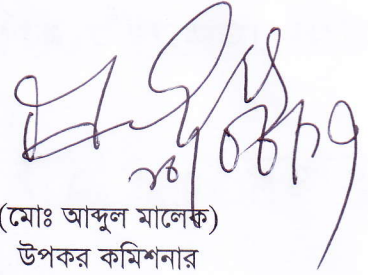 (মোঃ আব্দুল মালেক)
উপকর কমিশনার